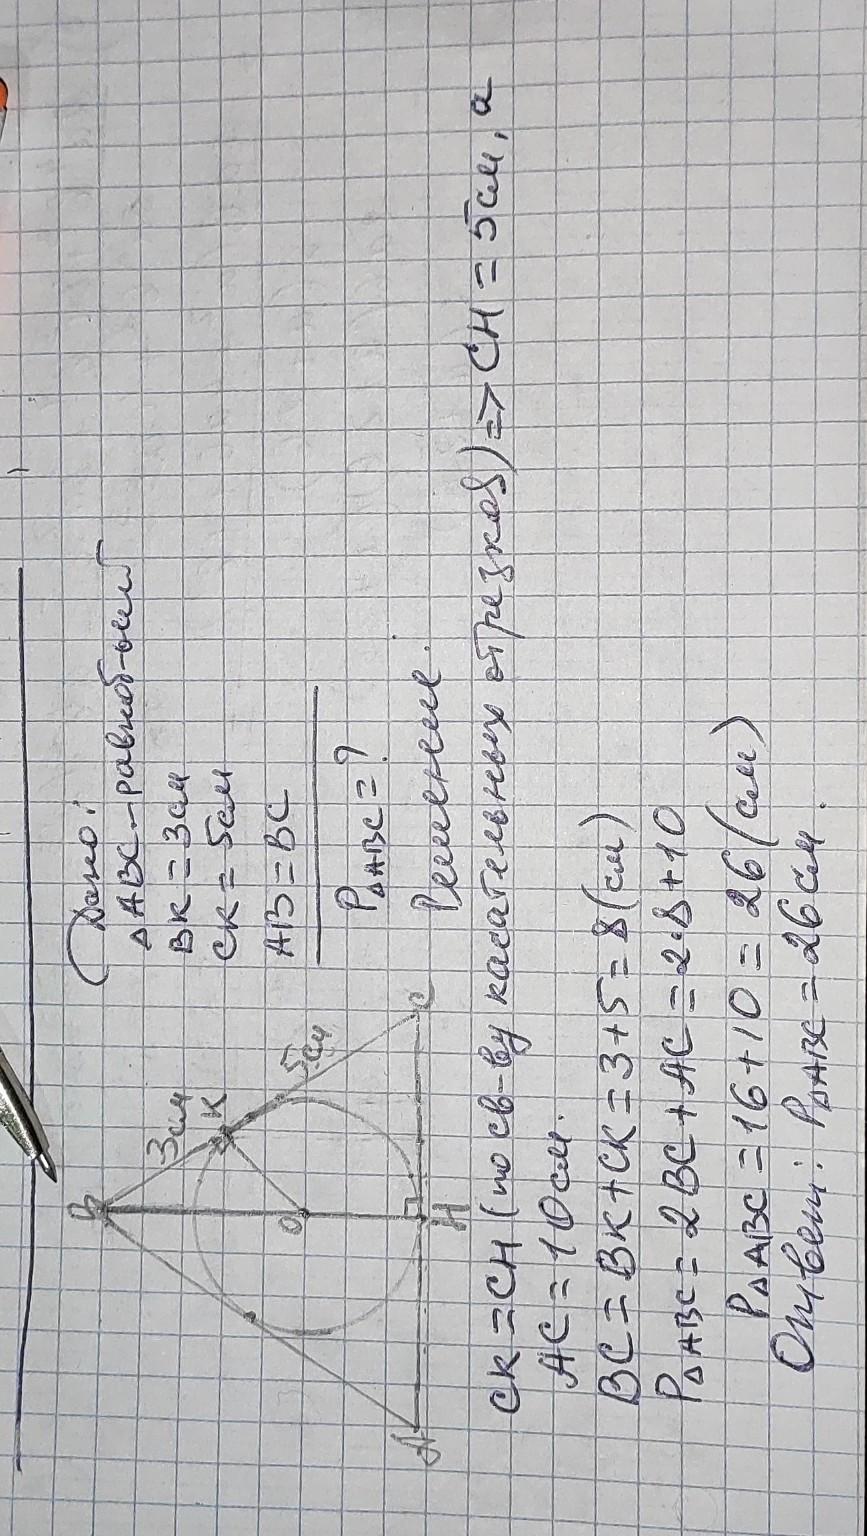 Дано:
△ABC-равноб-ый
BK=3см
CK=5см
AB=BC
P△ABC=?
B
3см
K
5см
O
A
H
C
Решение.
CK=CH(по св-ву касательных отрезков)=>CH=5см, а
AC=10см.
BC=BK+CK=3+5=8(см)
P△ABC=2BC+AC=2·8+10
P△ABC=16+10=26(см)
Ответ: P△ABC=26см.